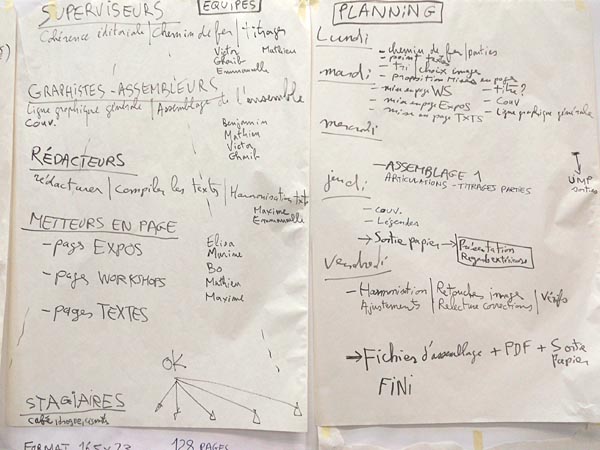 SUPERVISEURS
EQUIPES
Cohérence éditoriale / Chemin de fer / titrages
Victor
Mathieu
Ghaib
Emmanuelle
GRAPHISTES - ASSEMBLEURS
Ligne graphique générale / Assemblage de l'ensemble
Couv.
Benjamin
Mathieu
Victor
Ghaib
RÉDACTEURS
rédacturer / Compiler les textes / Harmonisation txts
Maxime
Emmanuelle
METTEURS EN PAGE
- pages EXPOS
Elisa
- pages WORKSHOPS
Bo
Mathieu
Maxime
- pages TEXTES
OK
STAGIAIRES
café
FORMAT 16,5 x 23
128 PAGES
PLANNING
Lundi
- chemin de fer / parties
- point textes
- Tri / choix image
- Proposition Mises en page
mardi
- mise en page WS
- titre ?
- mise en page Expos
- Couv
- mise en page TXTS
- Ligne graphique générale
mercredi
jeudi
- ASSEMBLAGE 1
ARTICULATIONS - TITRAGES PARTIES
- couv.
- Légendes
→ Sortie papier → Présentation
Regard extérieur
Vendredi
- Harmonisation / Retouches image / Vérifs
Ajustements / Relecture corrections
→ Fichiers d'assemblage + PDF + Sortie
papier
FINI